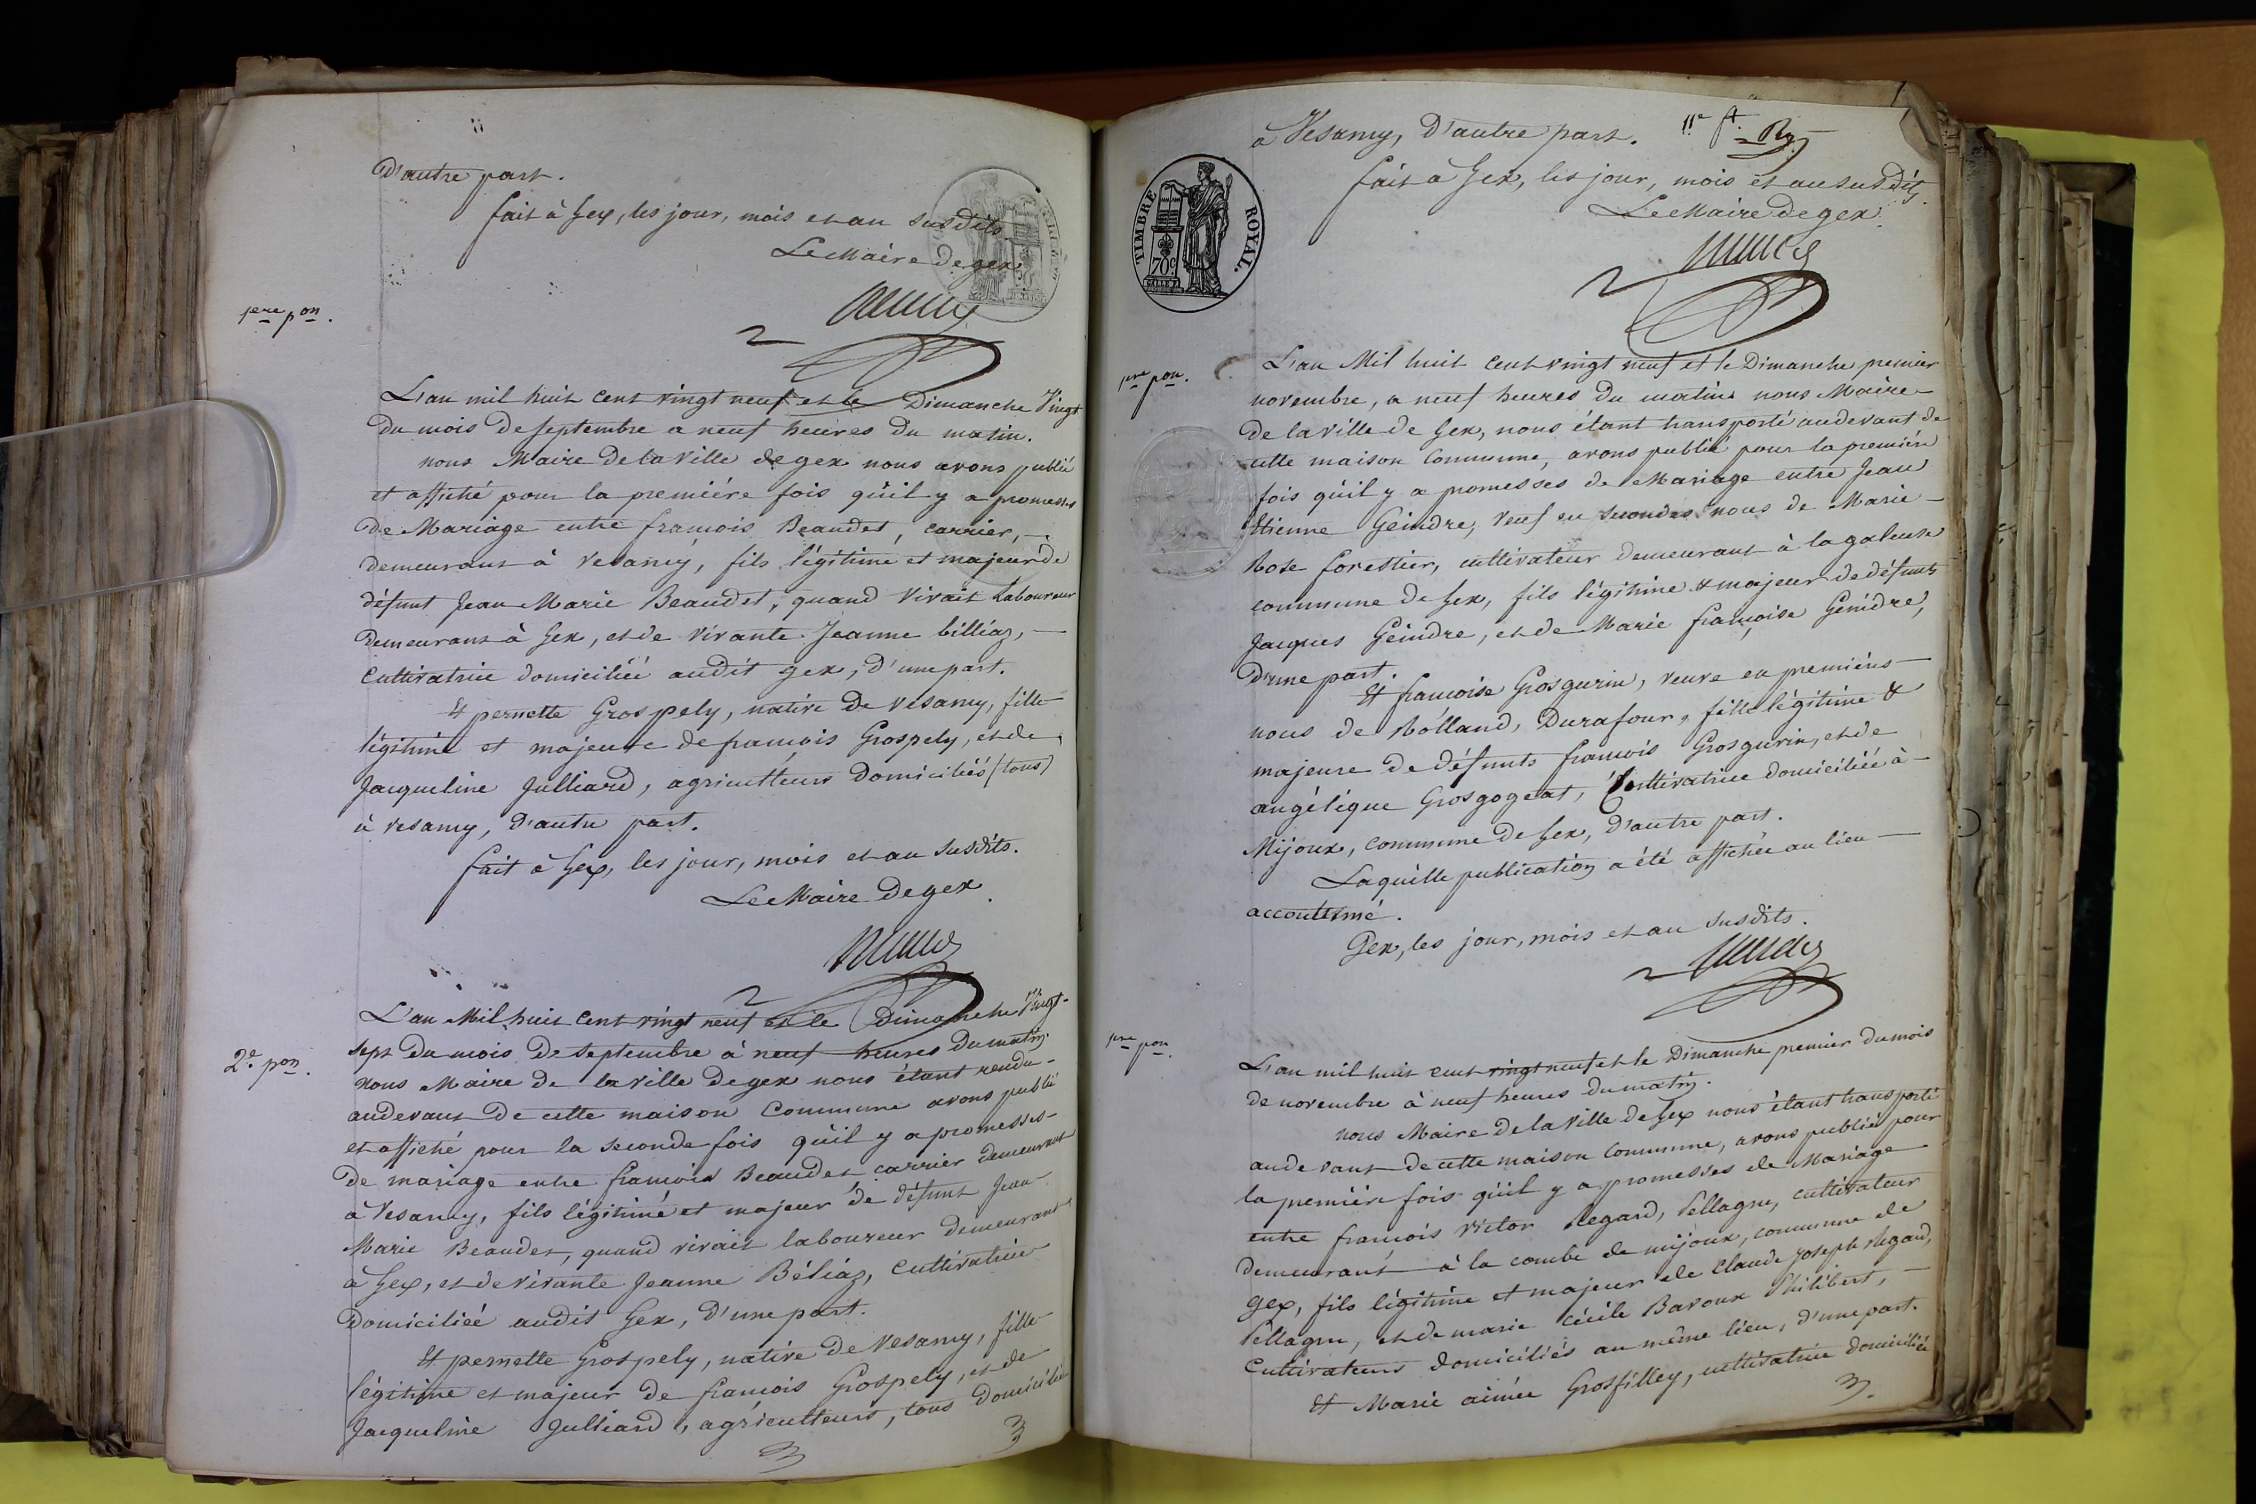 D'autre part.
fait à Gex, les jour, mois et an susdits
Le Maire de gex
1ere pon.
L'an mil huit cent vingt neuf et le Dimanche Vingt
du mois de septembre a neuf heures du matin.
nous Maire de la Ville de gex nous avons publié
et affiché pour la première fois qu'il y a promesses
de Mariage entre françois Beaudet, carrier,
demeurant à Vesancy, fils légitime et majeur de
défunt Jean Marie Beaudet, quand Vivait Laboureur
demeurant à Gex, et de vivante Jeanne billiaz,
Cultivatrice domiciliée audit gex, d'une part.
Et pernette Grospely, native de Vesancy, fille
légitime et majeure de françois Grospely, et de
Jacqueline Julliard, agriculteurs domiciliés (tous)
à Vesancy, d'autre part.
fait à Gex, les jour, mois et an susdits.
Le Maire de gex.
2e. pon.
L'an Mil huit cent vingt neuf et le Dimanche Vingt-
sept du mois de septembre à neuf heures du matin.
nous Maire de la ville de gex nous étant rendu
audevant de cette maison Commune avons publié
et affiché pour la seconde fois qu'il y a promesses
de mariage entre françois Beaudet carrier demeurant
à Vesancy, fils légitime et majeur de défunt Jean
Marie Beaudet, quand vivait laboureur demeurant
à Gex, et de vivante Jeanne Béliaz, Cultivatrice
domiciliée audit Gex, d'une part.
Et pernette Grospely, native de Vesancy, fille
légitime et majeur de françois Grospely, et de
Jacqueline Julliard, agriculteurs, tous domiciliés
à Vesancy, d'autre part. 11e ft.
fait à Gex, les jour, mois et an susdits.
Le Maire de gex.
TIMBRE ROYAL.
70c
1re pon.
L'an Mil huit cent vingt neuf et le Dimanche premier
novembre, a neuf heures du matin nous Maire
de la Ville de Gex, nous étant transporté audevant de
cette maison Commune, avons publié pour la première
fois qu'il y a promesses de Mariage entre Jean
Etienne Geindre, veuf en secondes nous de Marie
Rose forestier, cultivateur demeurant à la galeuse
commune de Gex, fils légitime & majeur de défunts
Jacques Geindre, et de Marie françoise Genidre,
d'une part.
Et francoise Grosgurin, veuve en premières
nous de Rolland, Durafour, fille légitime &
majeure de défunts francois Grosgurin, et de
angélique Grosgogeat, Cultivatrice domiciliée à
Mijoux, commune de Gex, d'autre part.
Laquelle publication a été affichée au lieu
accoutumé.
Gex, les jour, mois et an susdits.
1re pon.
L'an mil huit cent vingt neuf et le Dimanche premier du mois
de novembre à neuf heures du matin.
nous Maire de la Ville de Gex nous étant transporté
audevant de cette maison Commune, avons publié pour
la première fois qu'il y a promesses de Mariage
entre françois Victor Regard, Pellagru, cultivateur
demeurant à la combe de mijoux, commune de
Gex, fils légitime et majeur de Claude Joseph Regard,
Pellagru, et de marie Cécile Baroux Philibert,
Cultivateurs domiciliés au même lieu, d'une part.
Et Marie aimée Grosfilley, cultivatrice domiciliée